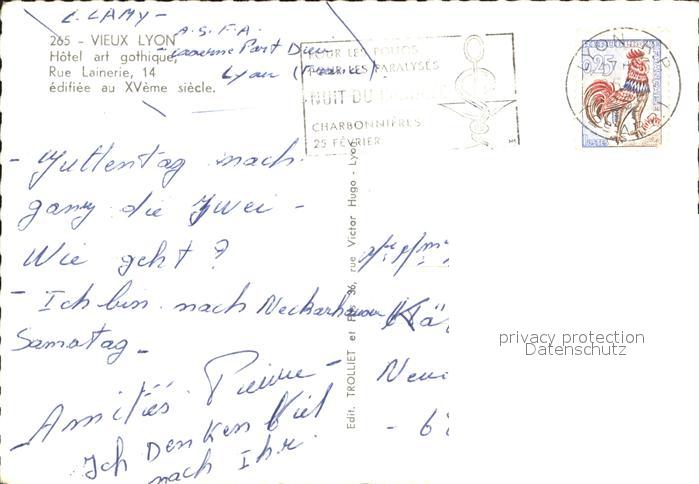 E. LAMY -
A.S.F.A.
265 - VIEUX LYON
Hôtel art gothique,
Rue Lainerie, 14
édifiée au XVème siècle.
- caserne Part Dieu
Lyon (
POUR LES POLIOS
POUR LES PARALYSÉS
NUIT DU
CHARBONNIÈRES
25 FÉVRIER
0,25
POSTES
- Guttentag nach
ganz die Zwei -
Wie geht ?
- Ich bin nach Neckarhausen
Samstag -
- Amitiés. Pierre -
Ich Denken Viel
nach Ihr.
Edit. TROLLIET et Fils 36, rue Victor Hugo - Lyon
- 6
privacy protection
Datenschutz